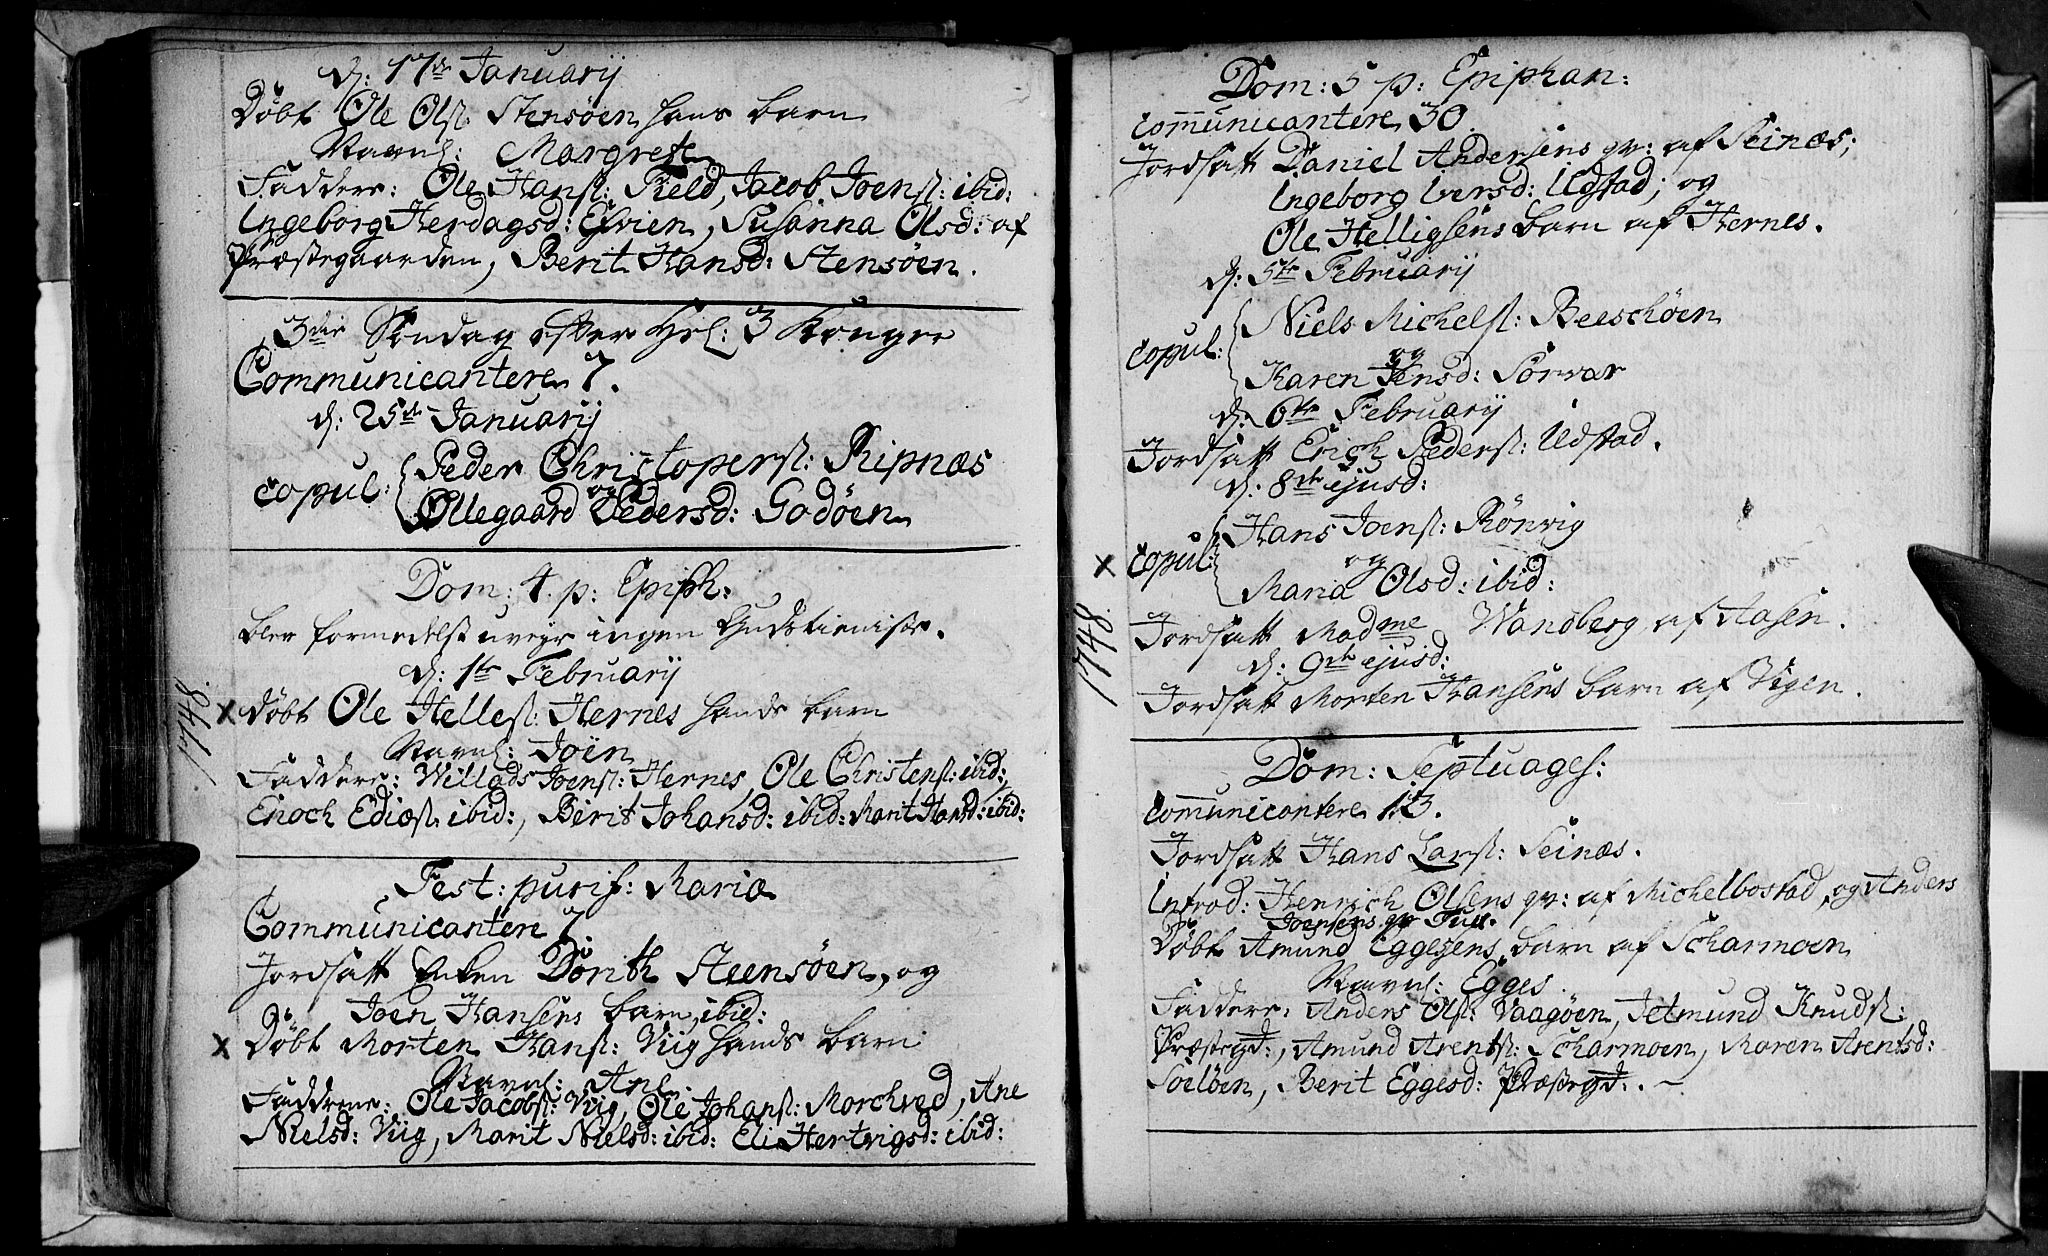 d: 17de Januarij
Døbt Ole Olsl: Stensøen hans barn
Navnl: Margrete
Faddere: Ole Hansl: Field, Jacob Joensl: ibid:
Ingeborg Herdagsd: Elvien, Susanna Olsd: af
Præstegaarden, Berit Hansd: Stensøen.
3die Søndag efter Hel: 3 Konger
Communicantere 7.
d: 25de Januarij
copul: Peder Christopersl: Ripnæs
og
Øllegaard Pedersd: Godøen
Dom: 4. p: Epiph:
blev formedelst uveyr ingen Gudstieniste.
d: 1te Februarij
1748.
x Døbt Ole Hellesl: Hernes hands barn
Navnl: Joën
Faddere: Willads Joensl: Hernes, Ole Christensl: ibid:,
Enoch Ediæsl ibid:, Berit Johansd: ibid: Marit Hansd: ibid:
Fest: purif: Mariæ
Communicantere 7
Jordsatt Enken Dorith Steensøen, og
Joen Hansens barn ibid:
x Døbt Morten Hansl: Viig hands barn
Navnl: Ane.
Faddrene: Ole Jacobsl: Viig, Ole Johansl: Morchved, Ane
Nielsd: Viig, Marit Nielsd: ibid: Eli Hertvigsd: ibid:
Dom: 5 p: Epiphan:
communicantere 30.
Jordsatt Daniel Andersens qv: af Seinæs;
Ingeborg Iversd: Udstad; og
Ole Helligsens barn af Hernes.
d: 5te Februarij
copul: Niels Michelsl: Beeschøen
og
Karen Jensd: Sørvær
d: 6te Februarij
Jordsatt Erich Pedersl: Udstad.
d: 8de ejusd:
x copul: Hans Joensl: Rönvig
og
Maria Olsd: ibid:
1748.
Jordsatt Madme Wandberg af Aasen.
d: 9de ejusd:
Jordsatt Morten Hansens barn af Vigen.
Dom: Septuages:
communicantere 13.
Jordsatt Hans Larsl: Seinæs.
Introd: Henrich Olsens qv: af Michelbostad, og Anders
Joensens qv Tuu.
Døbt Amund Eggesens barn af Scharmoen
Navnl: Egges.
Faddere: Anders Olsl: Vaagøen, Jetmund Knudsl:
Præstegd:, Amund Arentsl: Scharmoen, Maren Arentsd:
Soeløen, Berit Eggesd: Præstegd:.